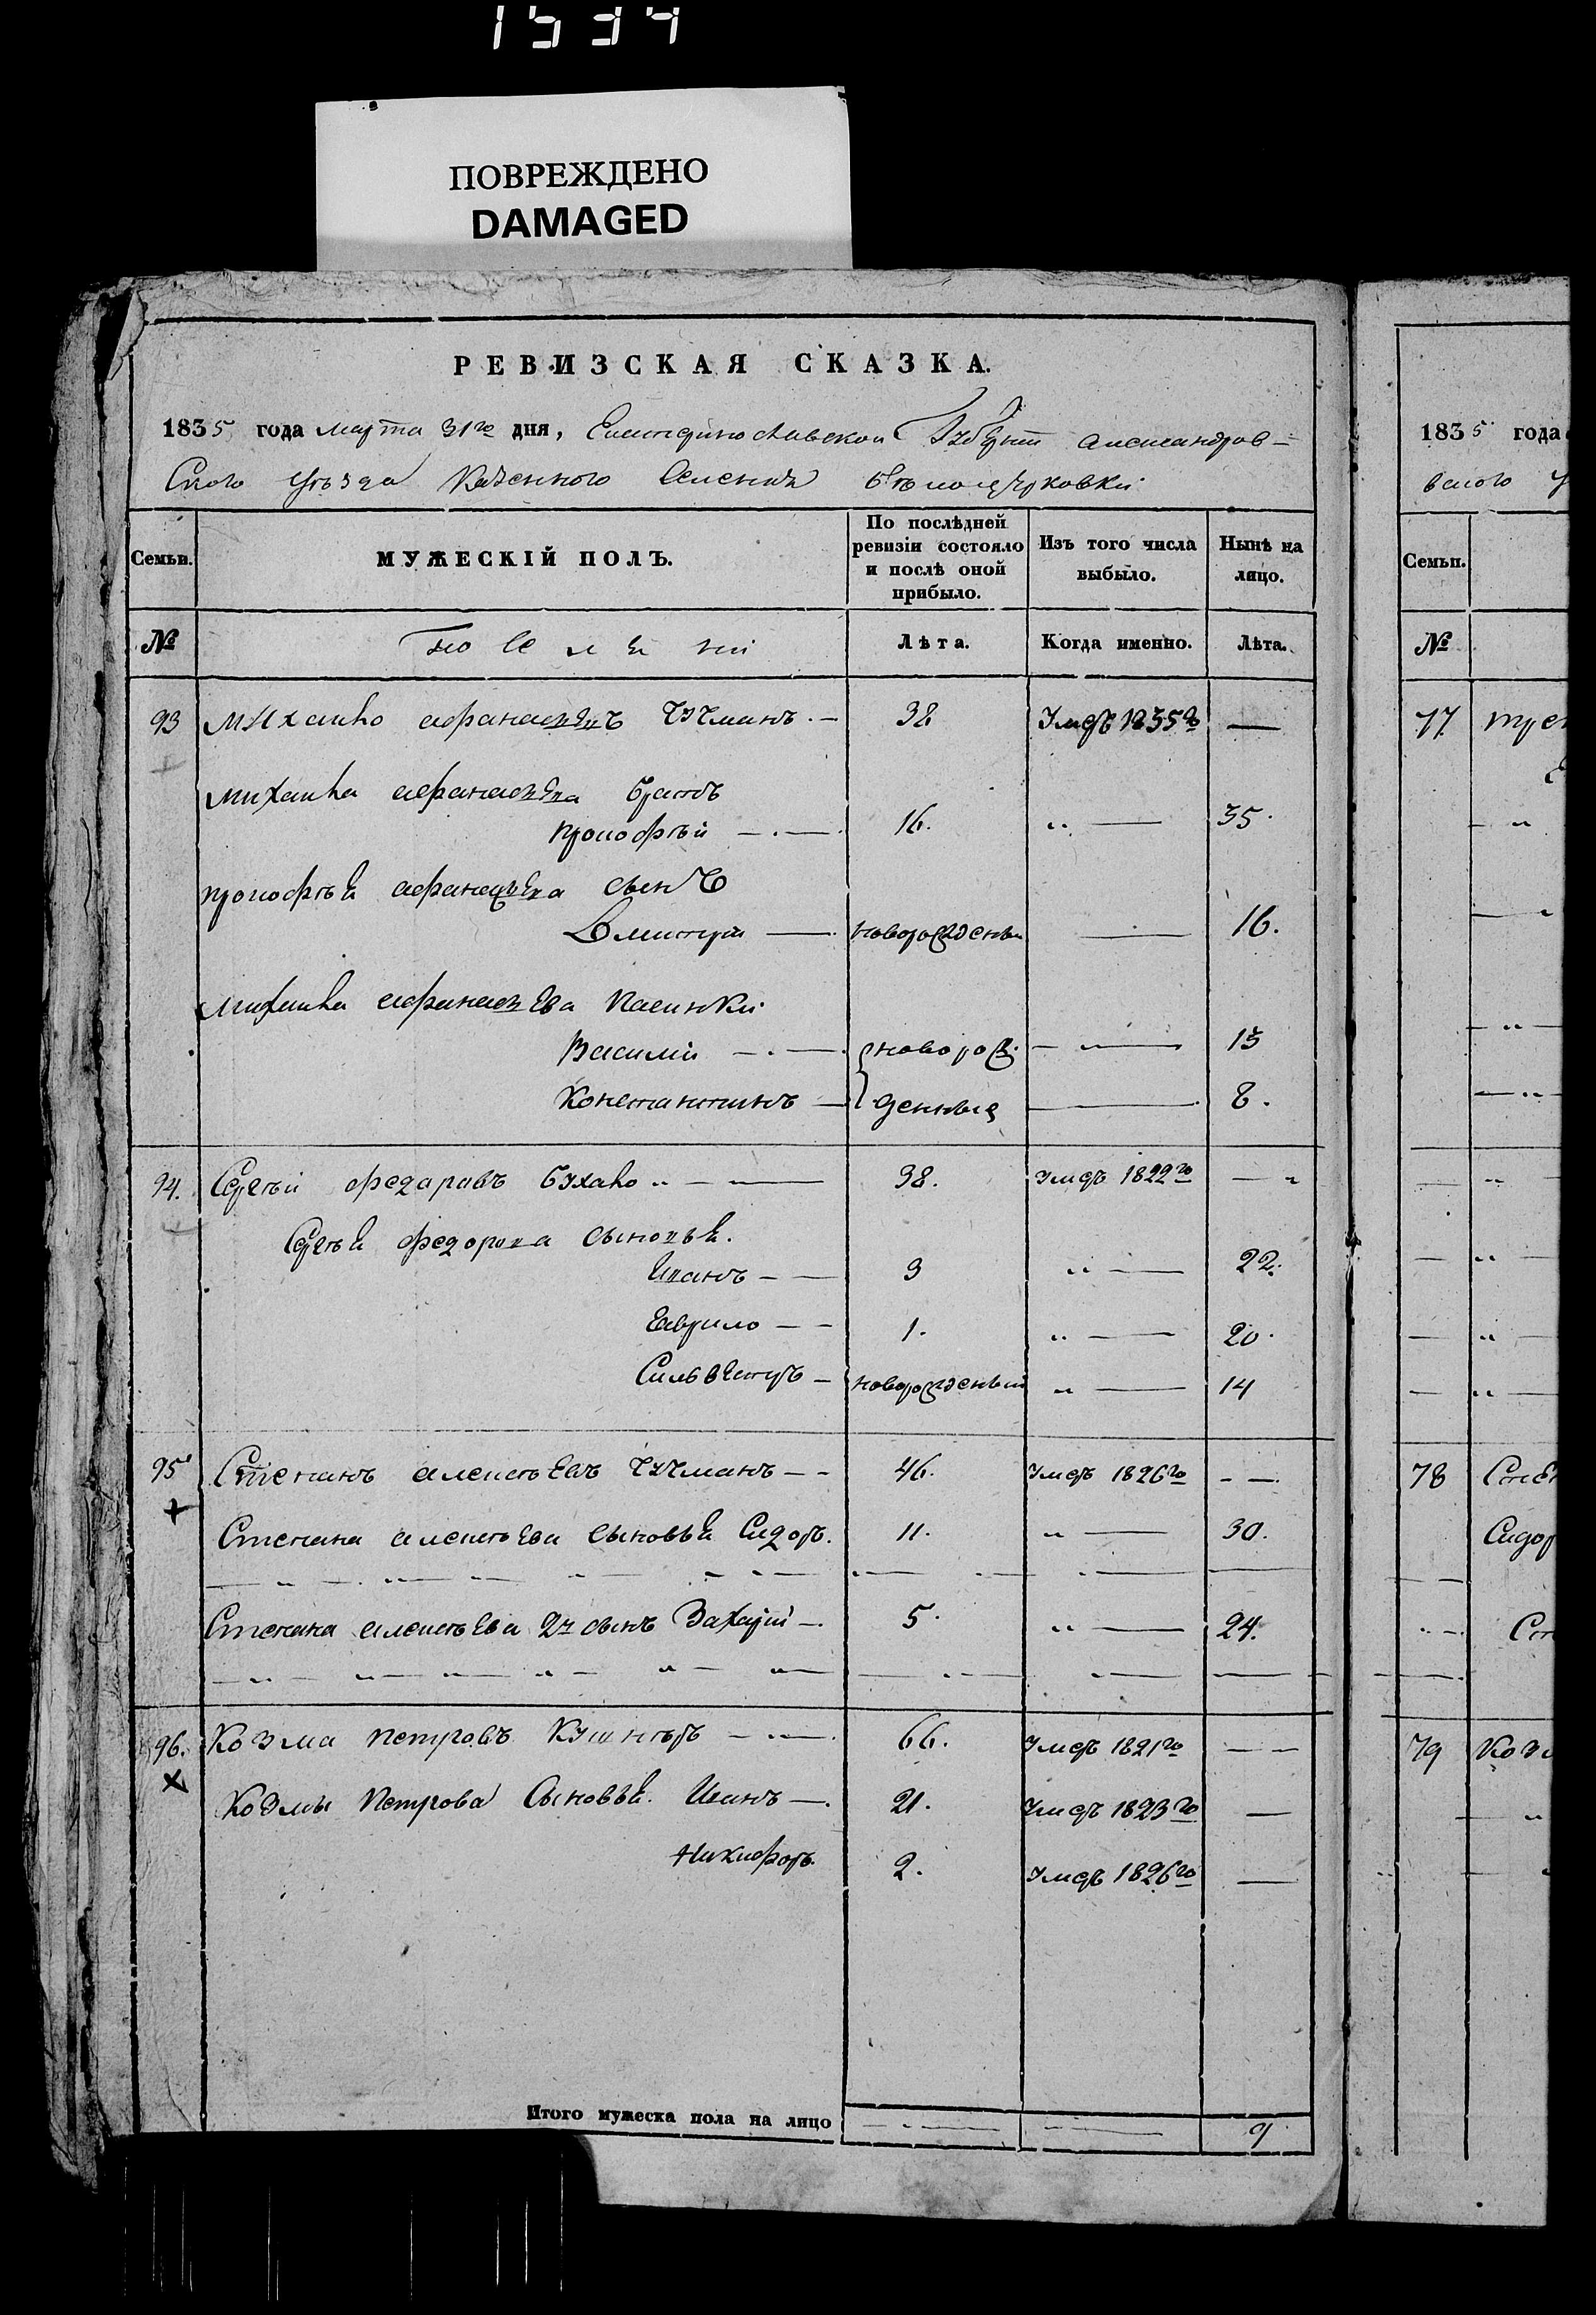 1534
ПОВРЕЖДЕНО
DAMAGED
РЕВИЗСКАЯ СКАЗКА.
1835 года марта 31го дня, Екатеринославской Губерніи александров-
Ского уѣзда Казенного Селенія бѣлоцерковки
Семьи. МУЖЕСКІЙ ПОЛЪ. По послѣдней ревизіи состояло и послѣ оной прибыло. Изъ того числа выбыло. Нынѣ на лицо.
№ Лѣта. Когда именно. Лѣта.
93 Михайло афанасьевъ Чучманъ 38 Умеръ 1835го —
Михайла афанасьева братъ
прокофѣй 16. 35.
прокофѣя афанасьева сынъ
Дмитрій новорожденный 16.
Михайла афанасьева пасинки
Василій новорож- 15
Константинъ денные 8.
94. Сергѣй федаравъ бухало 38. умеръ 1822го
Сергѣя федорова сыновья.
Иванъ 3 22.
Гаврило 1. 20.
Сильвестръ новорожденный 14
95 Степанъ алексѣевъ Чучманъ 46. Умеръ 1826го
Степана алексѣева сыновья Сидоръ. 11. 30.
Степана алексѣева 2й сынъ Захарій 5. 24.
96. Козма петровъ Кушнѣръ 66. Умеръ 1821го
Козмы петрова Сыновья. Иванъ 21. Умеръ 1823го
Никифоръ. 2. Умеръ 1826го
Итого мужеска пола на лицо 9
1835 года
вского у
Семьи.
№
77
78
Сидор
79 Коз